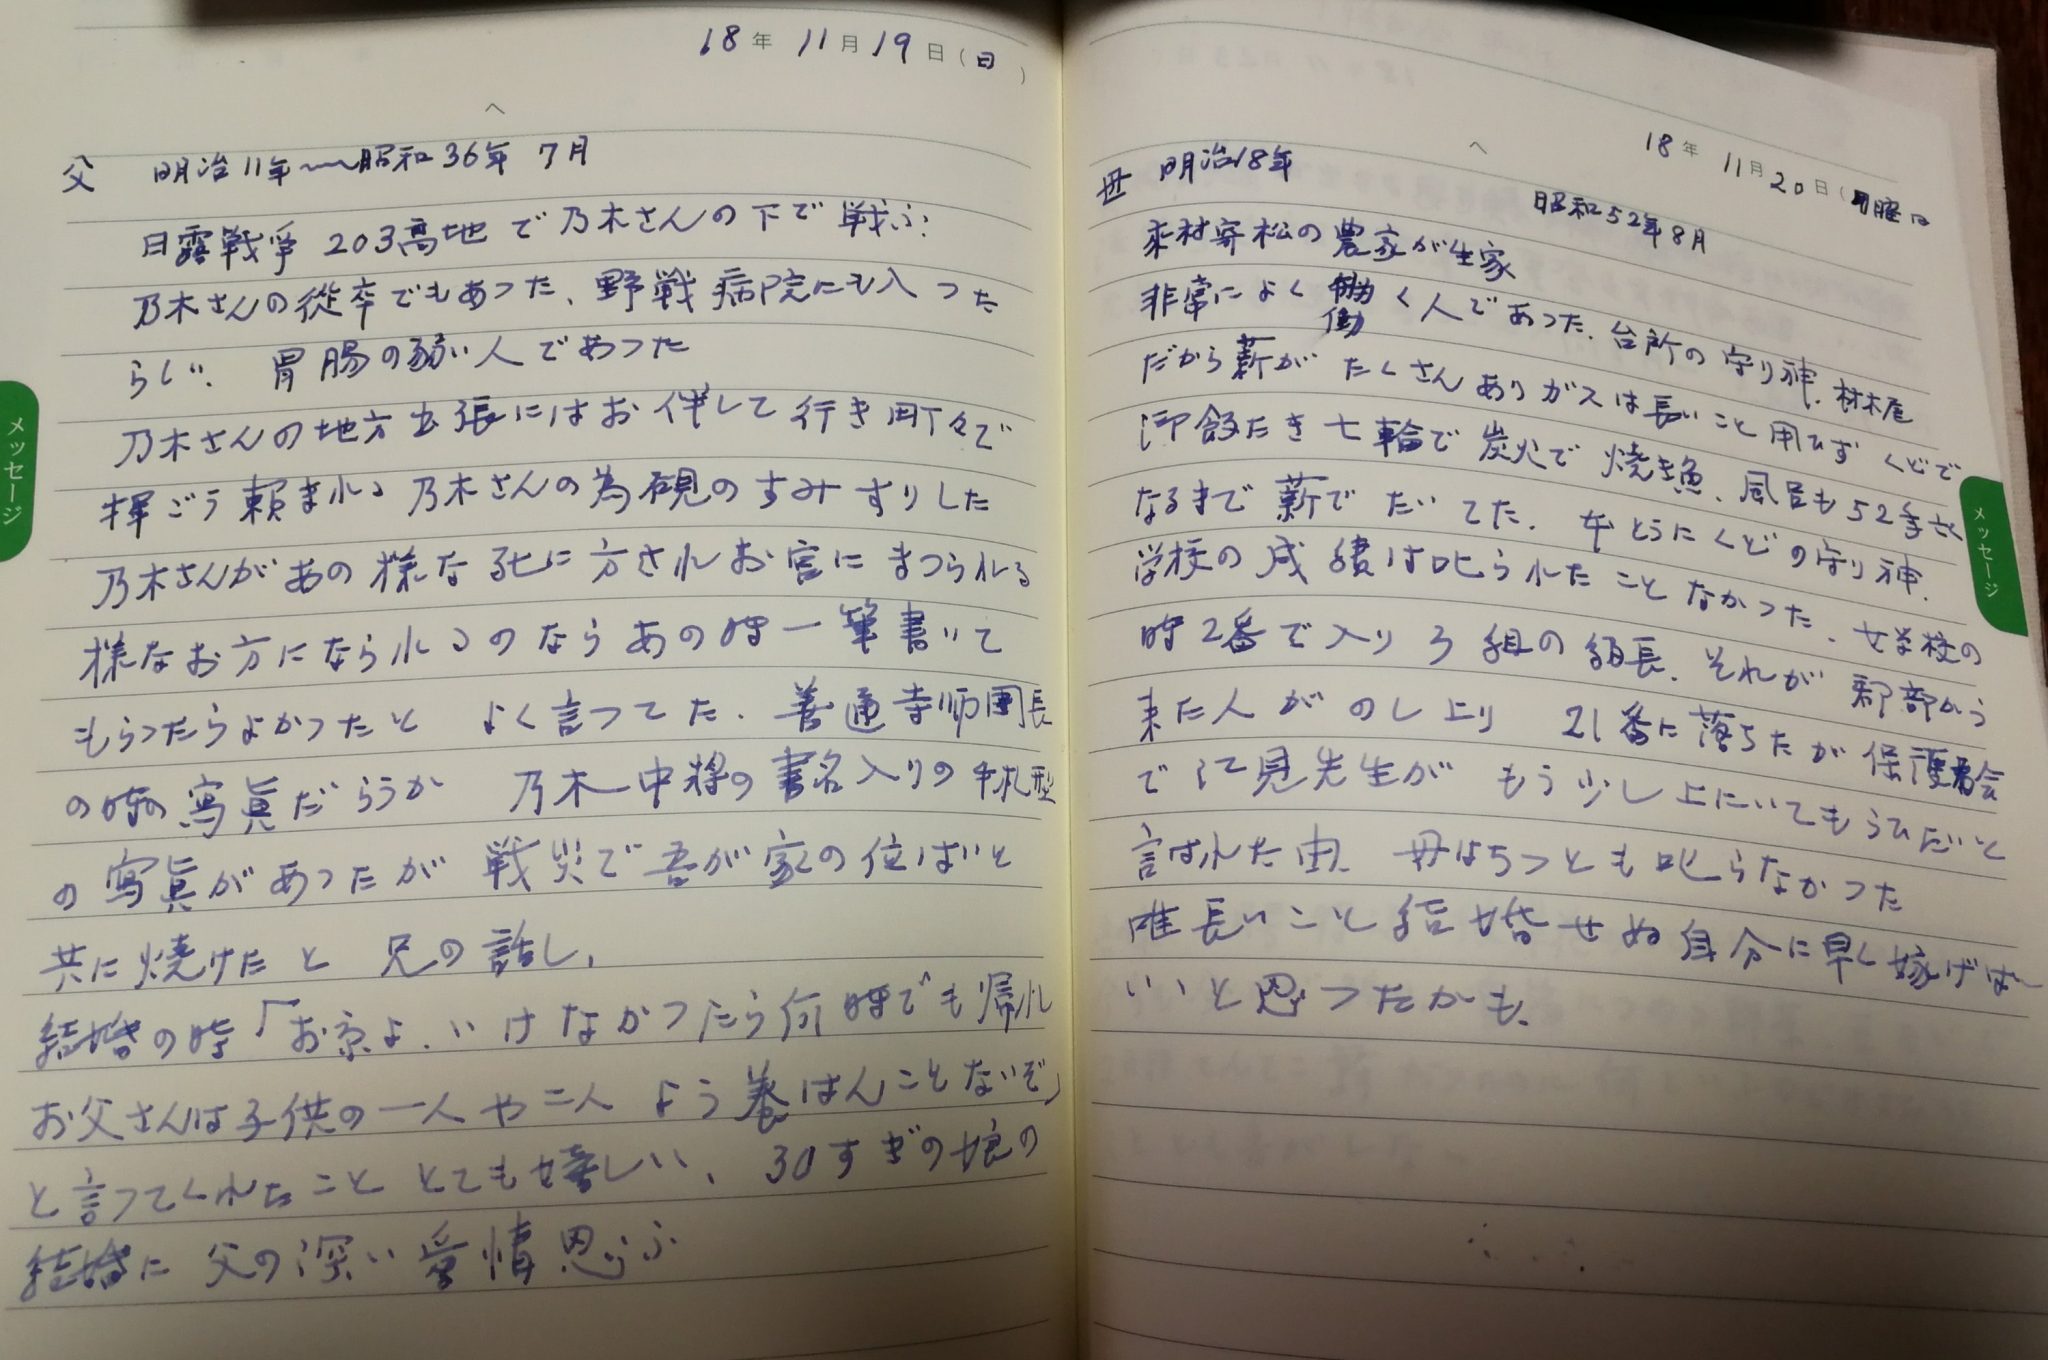 18年 11月19日(日)
へ
父 明治11年〜昭和36年 7月
日露戦争 203高地で乃木さんの下で戦ふ.
乃木さんの従卒でもあった、野戦病院にも入った
らしい. 胃腸の弱い人であった
乃木さんの地方出張にはお伴して行き所々で
揮ごう頼まれる 乃木さんの為硯のすみすりした
乃木さんがあの様な死に方されお宮にまつられる
様なお方になられるのならあの時一筆書いて
もらったらよかったと よく言ってた. 善通寺師団長
の時の寫眞だらうか 乃木中将の書名入りの手札型
の寫眞があったが 戦災で吾が家の位ぱいと
共に焼けたと 兄の話し、
結婚の時「お京よ、いけなかったら何時でも帰れ
お父さんは子供の一人や二人 よう養はんことないぞ」
と言ってくれたこと とても嬉しい、30すぎの娘の
結婚に 父の深い愛情思ふ
メッセージ
18年 11月20日(月曜日
へ
母 明治18年
昭和52年8月
寄松の農家が生家
非常によく働く人であった. 台所の守り神. 材木屋
働
だから薪が たくさんありガスは長いこと用ひず くどで
御飯たき七輪で炭火で 焼き魚、風呂も52年
なるまで薪で たいてた. くどの守り神.
学校の成績は叱られたことなかった. 女学校の
時2番で入り 3組の組長. それが 郡部から
来た人がのし上り 21番に落ちたが保護者会
で江見先生が もう少し上にいてもらひたいと
言はれた由. 母はちっとも叱らなかった
唯長いこと結婚せぬ自分に早く嫁げば
いいと思ったかも.
メッセージ